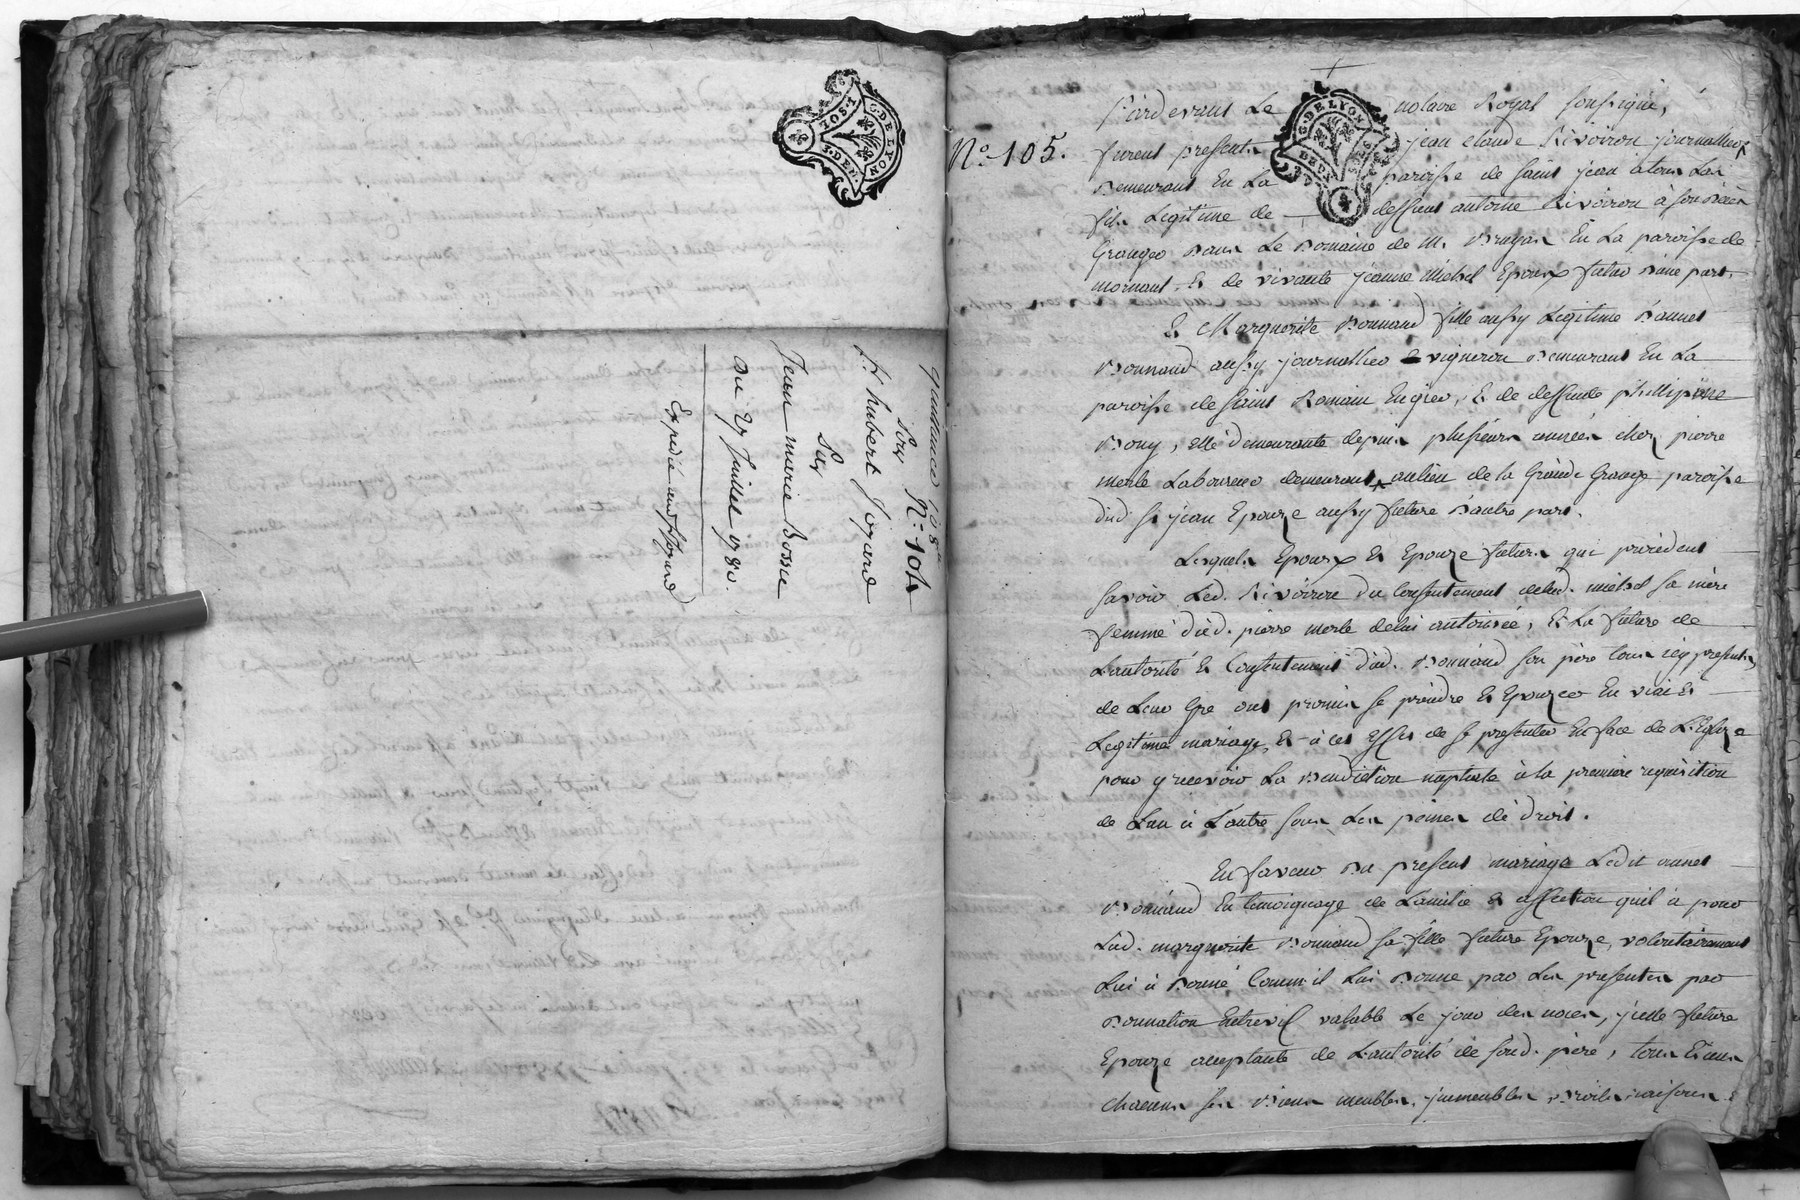 Quittance 108#
N.º 104
Pour
Sr. hubert Jojard
Sur
Jean marie Bossu
Du 27 Juillet 1780.
Expedié aud. Sr. Jojard
G. DE LYON
N.º 105.
G. DE LYON
DEUX
Pardevant Le notaire Royal soussigné,
furent presents jean claude Rivoiron journallier
Demeurant En La paroisse de saint jean à tour Las
fils Legitime de deffunt antoine Rivoiron à son décès
Granger Dans Le Domaine de M. Bruyas En La paroisse de
mornant, Et de vivante jeanne Michel Epoux futur D'une part.
Et Marguerite Bonnand fille aussy Legitime D'annet
Bonnand aussy journallier & vigneron Demeurant En La
paroisse de saint Romain Engier, Et de deffunte phillipine
Bony, Elle demeurante depuis plusieurs années chez pierre
merle Laboureur demeurant au lieu de la Grande Grange paroisse
dud. st jean Epouze aussy future D'autre part.
Lesquels Epoux Et Epouze futurs qui procedent
savoir Led. Rivoiron du Consentement de lad. michel sa mère
femme dud. pierre merle de lui autorisée, Et La future de
L'autorité Et Consentement dud. Bonnand son père tous icy presents,
de Leur Gré ont promis se prendre Et Epouzer En vrai Et
Legitime mariage, Et à cet Effet de se presenter En face de L'Eglize
pour y recevoir La Benediction nuptiale à la premiere requisition
de L'un à L'autre sous Les peines de droit.
En faveur Du present mariage Ledit annet
Bonnand En temoignage de L'amitié & affection qu'il à pour
Lad. marguerite Bonnand sa fille future Epouze, volontairement
Lui à Donné Comm'il Lui Donne par Les presentes par
Donnation Entrevif valable Le jour des noces, icelle future
Epouze acceptante de L'autorité de sond. père, tous Et uns
chacuns ses Biens meubles, jmmeubles, Droits, raisons